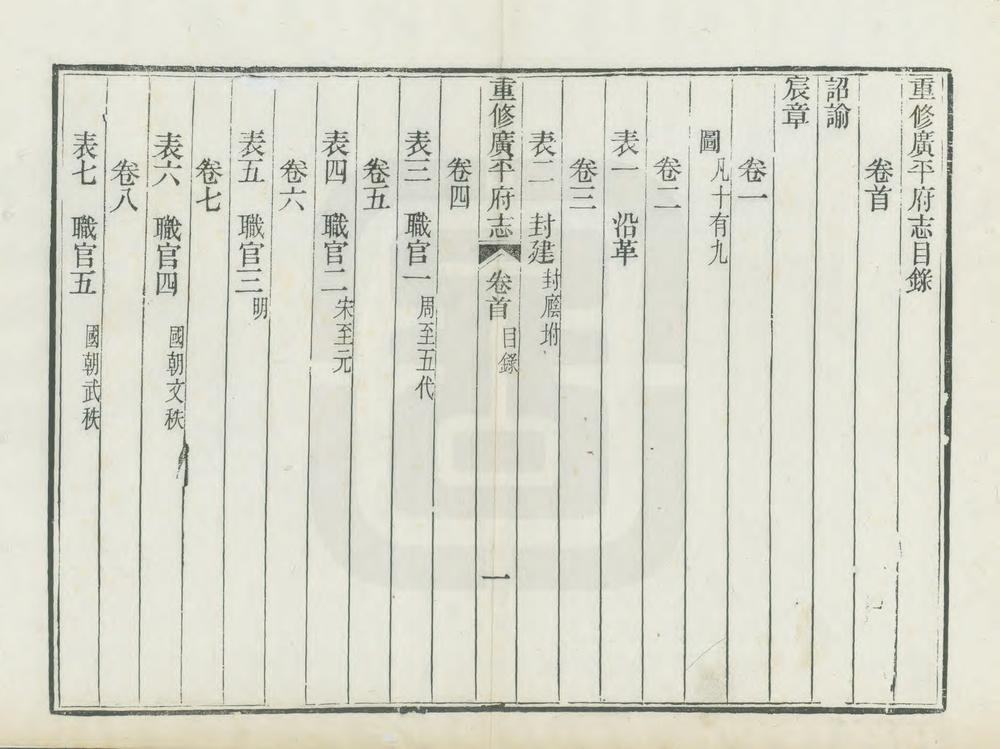 重修廣平府志目錄
卷首
詔諭
宸章
卷一
圖 凡十有九
卷二
表一 沿革
卷三
表二 封建 封廕坿
重修廣平府志 卷首 目錄 一
卷四
表三 職官一 周至五代
卷五
表四 職官二 宋至元
卷六
表五 職官三 明
卷七
表六 職官四 國朝文秩
卷八
表七 職官五 國朝武秩